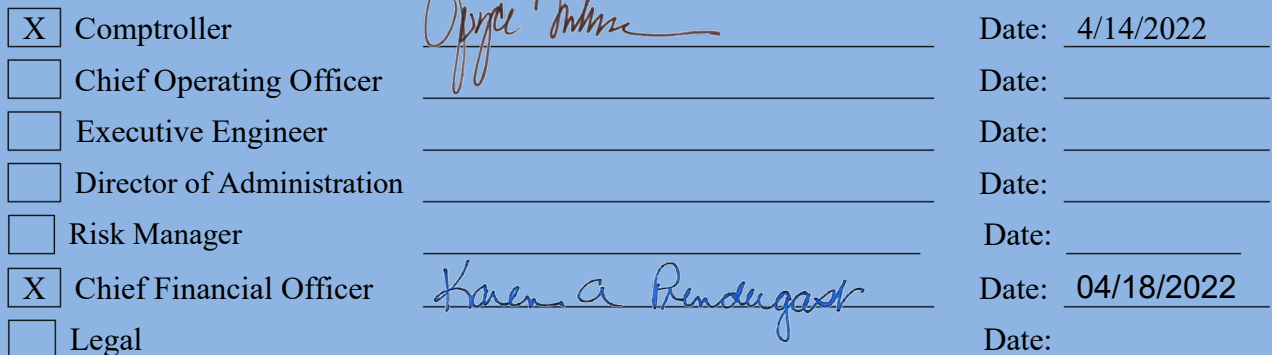 X Comptroller Date: 4/14/2022
Chief Operating Officer Date:
Executive Engineer Date:
Director of Administration Date:
Risk Manager Date:
X Chief Financial Officer Karen A Prendergast Date: 04/18/2022
Legal Date: